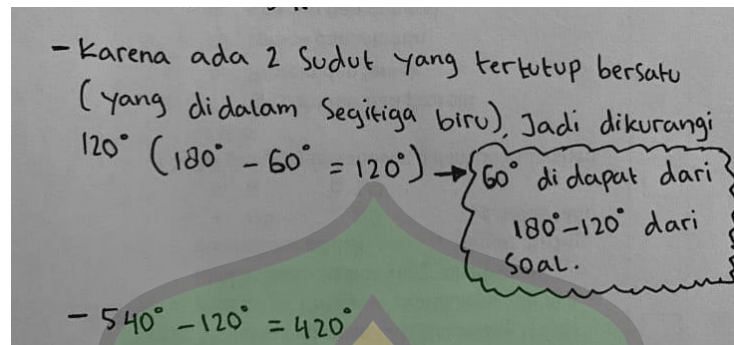 - Karena ada 2 Sudut yang tertutup bersatu
(yang didalam Segitiga biru). Jadi dikurangi
120° (180° - 60° = 120°) → 60° di dapat dari
180° - 120° dari
Soal.
- 540° - 120° = 420°